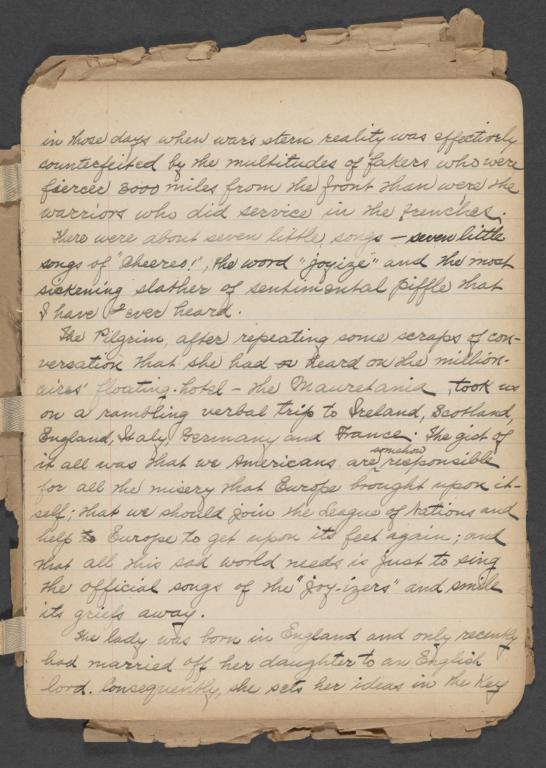 in those days when war's stern reality was effectively
counterfeited by the multitudes of fakers who were
fiercer 3000 miles from the front than were the
warriors who did service in the trenches.
There were about seven little songs - seven little
songs of "Cheereo!", the word "joyize" and the most
sickening slather of sentimental piffle that
I have ever heard.
The Pilgrim, after repeating some scraps of con-
versation that she had heard on the million-
aires' floating-hotel - the Mauretania, took us
on a rambling verbal trip to Ireland, Scotland,
England, Italy, Germany and France. The gist of
it all was that we Americans are somehow responsible
for all the misery that Europe brought upon it-
self; that we should join the League of Nations and
help to Europe to get upon its feet again; and
that all this sad world needs is just to sing
the official songs of the "Joy-izers" and smile
its griefs away.
The lady was born in England and only recently
had married off her daughter to an English
lord. Consequently, she sets her ideas in the key